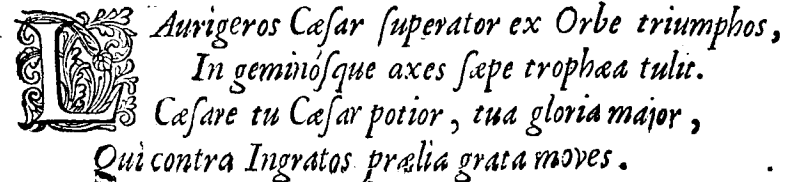 LAurigeros Cæſar ſuperator ex Orbe triumphos,
In geminóſque axes ſæpe trophæa tulit.
Cæſare tu Cæſar potior, tua gloria major,
Qui contra Ingratos prælia grata moves.